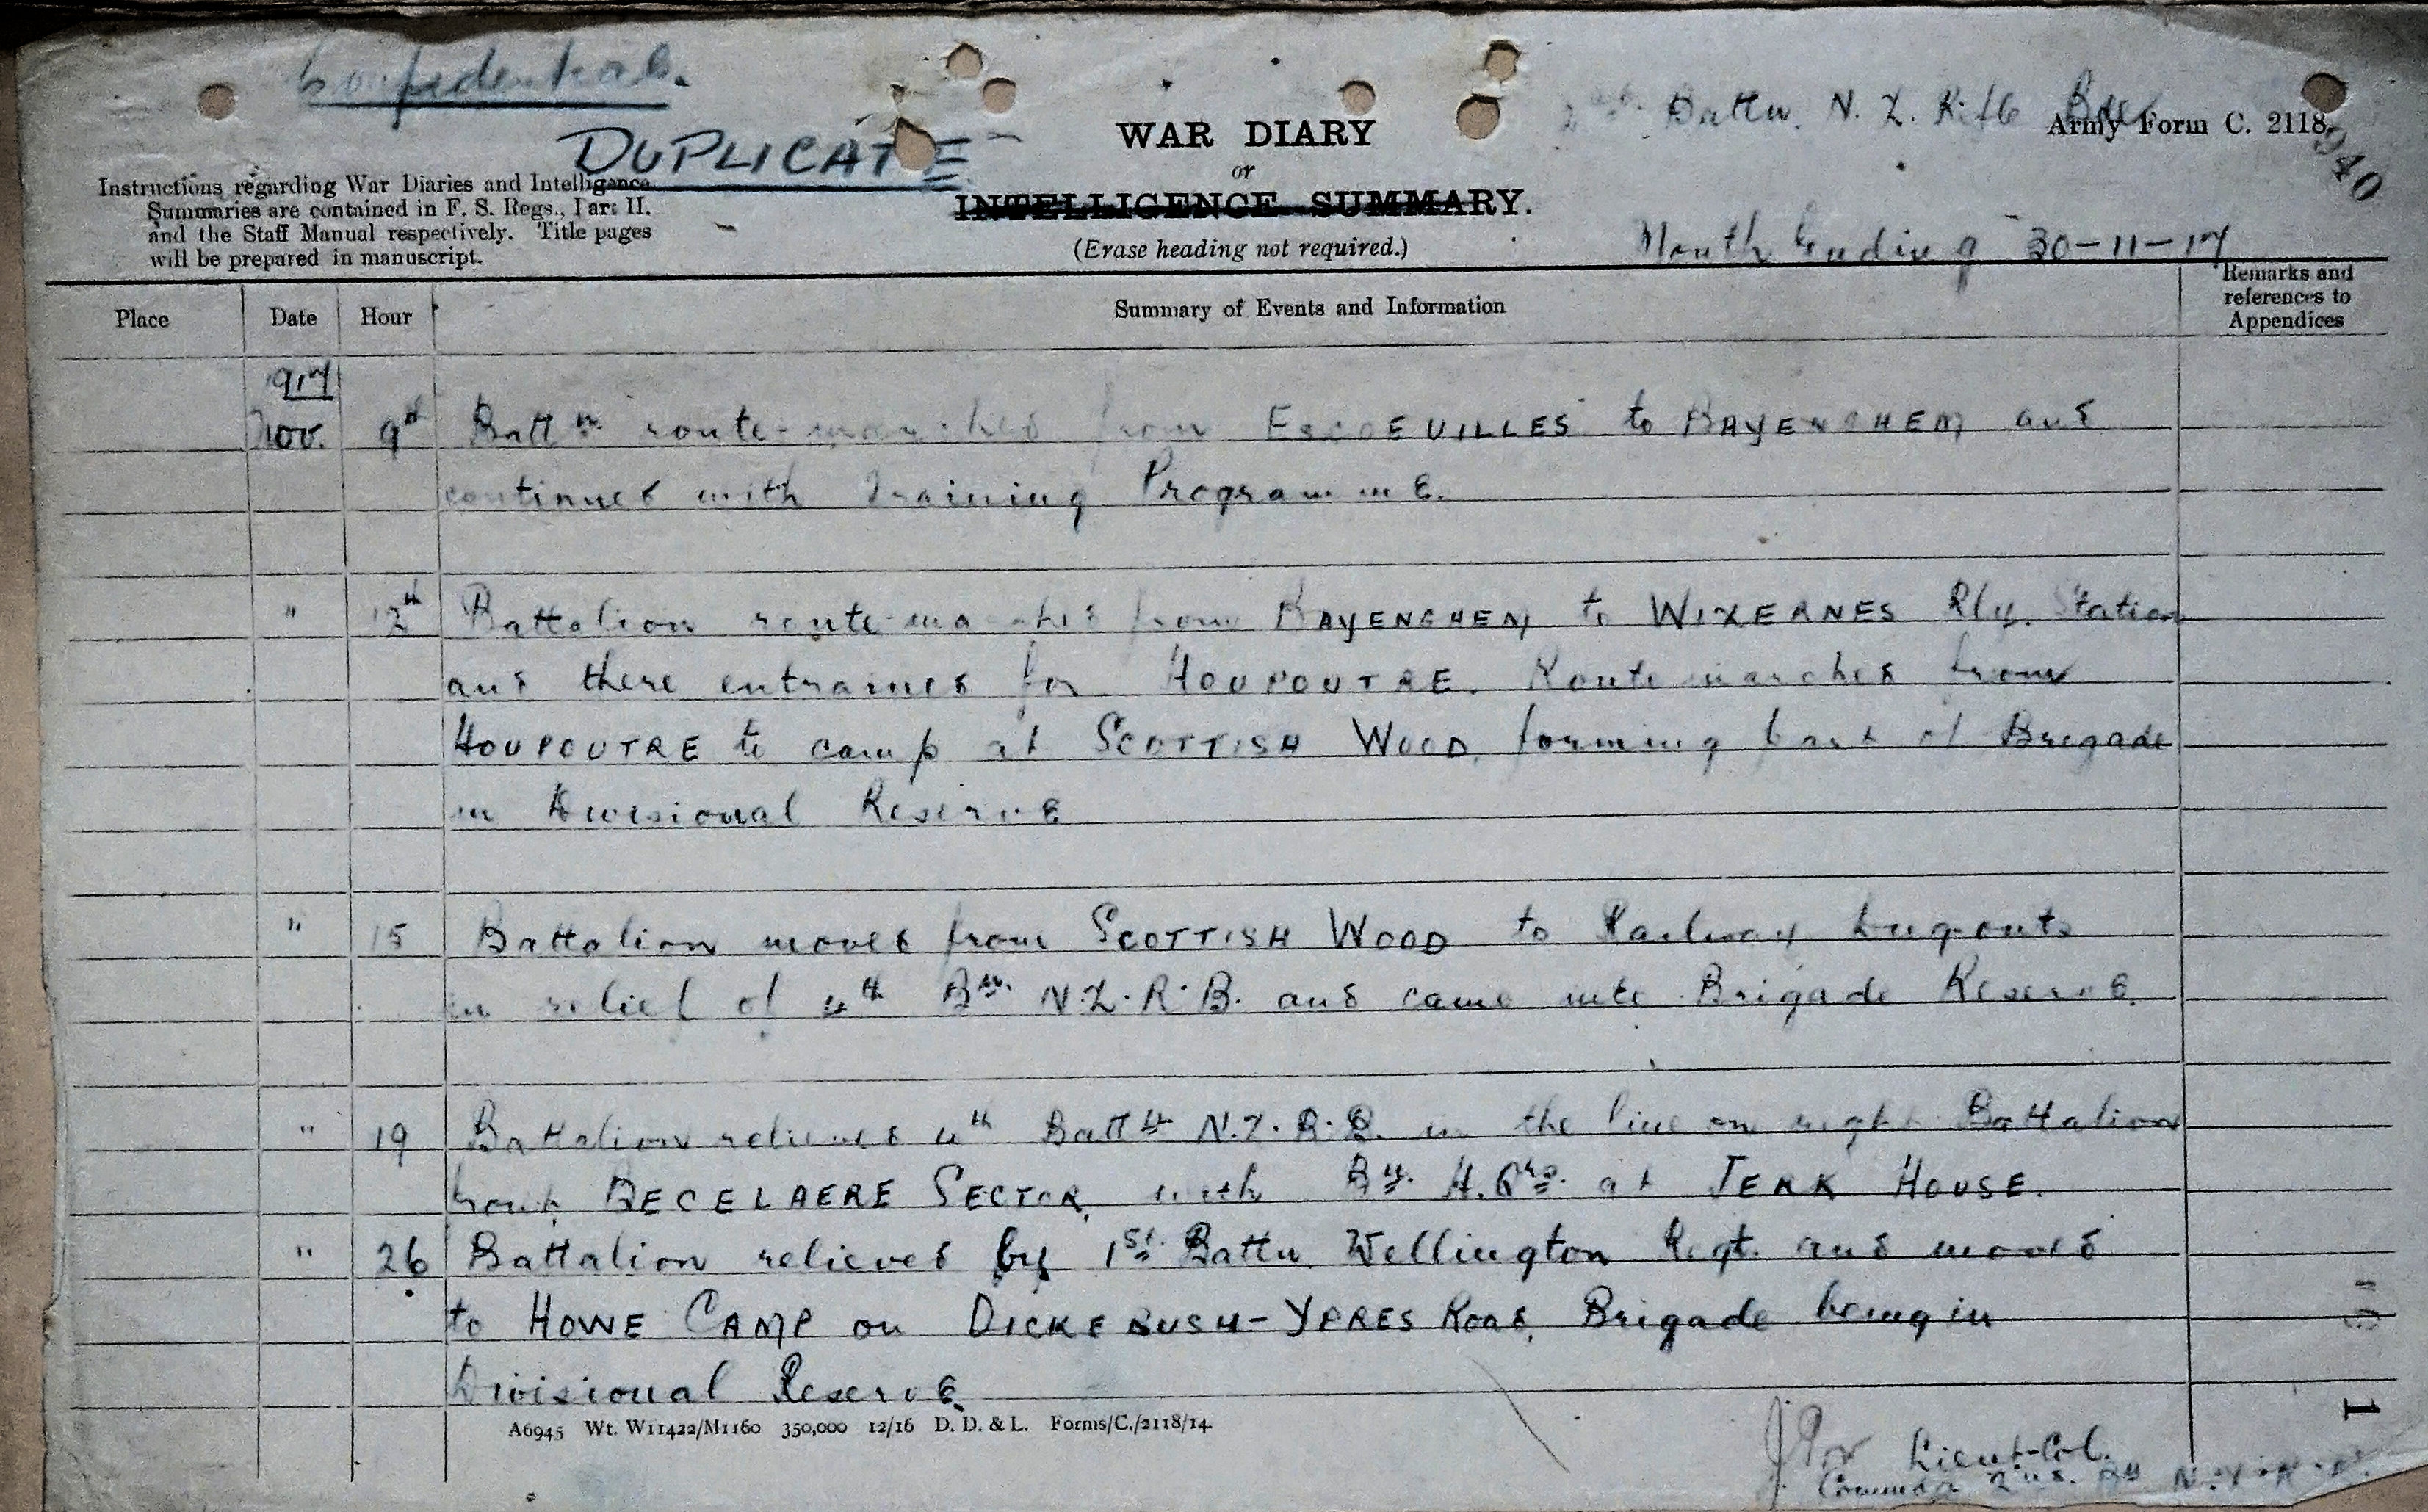 Confidential.
DUPLICATE
2nd. Battn. N. Z. Rifle Bde
Army Form C. 2118.
WAR DIARY
or
INTELLIGENCE SUMMARY.
(Erase heading not required.)
Instructions regarding War Diaries and Intelligence
Summaries are contained in F. S. Regs., Part II.
and the Staff Manual respectively. Title pages
will be prepared in manuscript.
Month Ending 30-11-17
Place Date Hour Summary of Events and Information Remarks and references to Appendices
1917
Nov. 9th Battn route-marched from ESCOEUILLES to BAYENGHEM and
continued with Training Programme.
" 12th Battalion route-marched from BAYENGHEM to WIZERNES Rly. Station
and there entrained for HOUPOUTRE. Route marched from
HOUPOUTRE to camp at SCOTTISH WOOD, forming part of Brigade
in Divisional Reserve
" 15 Battalion moved from SCOTTISH WOOD to Railway Dugouts
in relief of 4th Bn. N.Z.R.B. and came into Brigade Reserve.
" 19 Battalion relieved 4th Battn N.Z.R.B. in the line on right Battalion
front, BECELAERE SECTOR, with Bn. H.Qrs. at JERK HOUSE.
" 26 Battalion relieved by 1st. Battn. Wellington Regt. and moved
to HOWE CAMP on DICKEBUSH-YPRES Road, Brigade being in
Divisional Reserve.
A6945 Wt. W11422/M1160 350,000 12/16 D. D. & L. Forms/C./2118/14.
Lieut-Col.
Commdg 2nd. Bn N.Z.R.B.
1